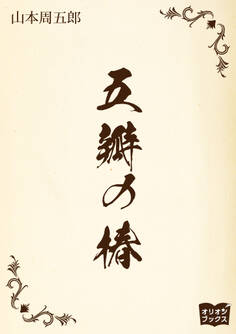 山本周五郎
五瓣の椿
オリオン
ブックス